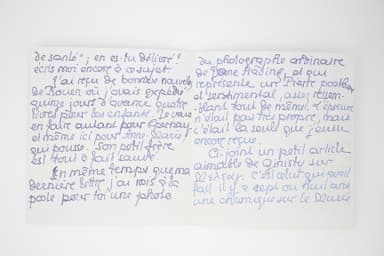 de santé ; en es-tu délivré ?
écris moi encore à ce sujet.
J'ai reçu de bonnes nouvelles
de Rouen où j'avais expédié
quinze jours d'avance quatre
livres pour les enfants. Je vais
en faire autant pour Épernay
et même ici pour Anne-Marie
qui pousse. Son petit frère
est tout à fait sauvé.
En même temps que ma
dernière lettre, j'ai mis à la
poste pour toi une photo
du photographe ordinaire
de Jane Hading, et qui
représente un Pierrot
et sentimental, assez ressem-
blant tout de même. L'épreuve
n'était pas très propre, mais
c'était la seule que j'eusse
encore reçue.
Ci-joint un petit article
aimable de Ginisty sur
c'est celui qui avait
fait il y a sept ou huit ans
une chronique sur le